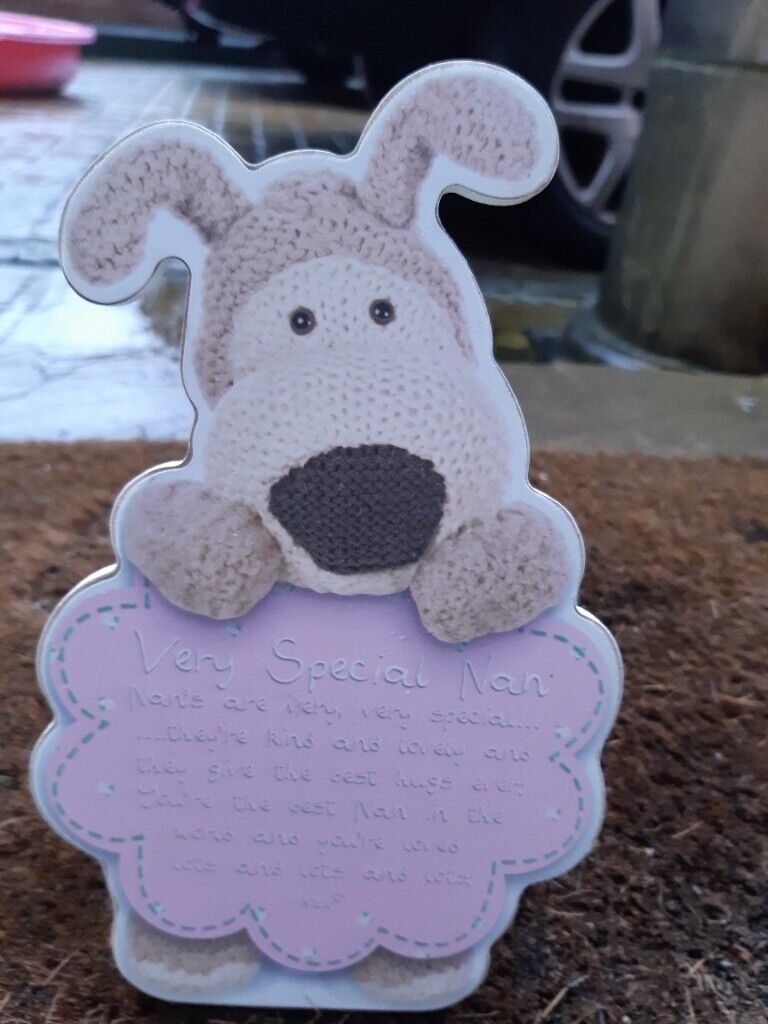 Very Special Nan
Nan's are very, very special...
....they're kind and lovely and
they give the best hugs ever,
You're the best Nan in the
world and you're loved
lots and lots and lots,